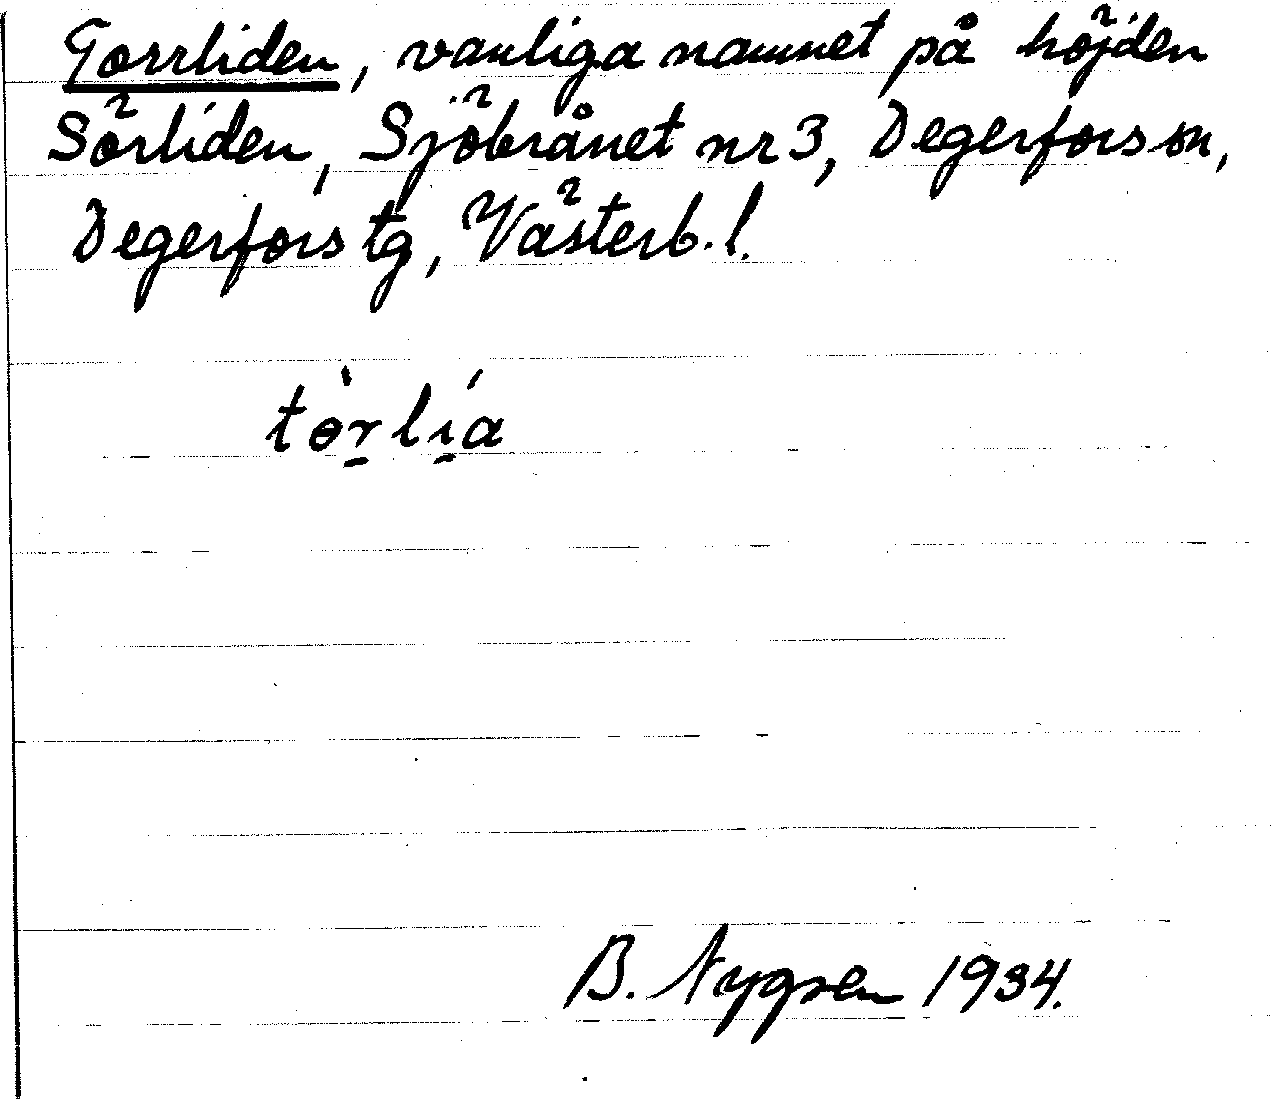 Torrliden, vanliga namnet på höjden
Sörliden, Sjöbrånet nr 3, Degerfors sn,
Degerfors tg, Västerb. l.
tørlìa
B. Nygren 1934.